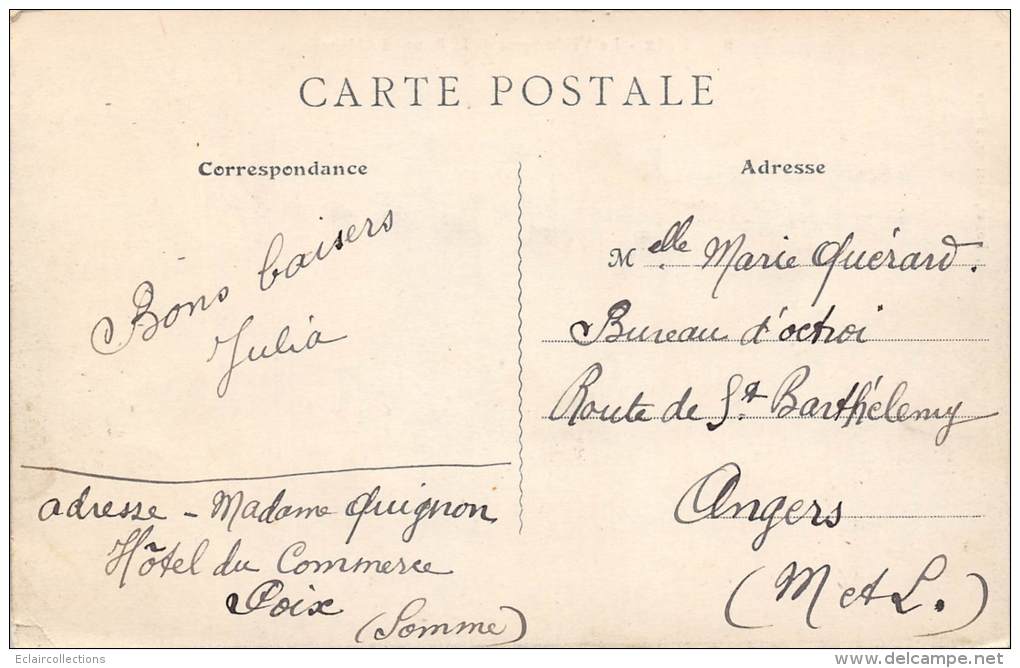 CARTE POSTALE
Correspondance
Bons baisers
Julia
adresse - Madame Quignon
Hôtel du Commerce
Poix
(Somme)
Adresse
Melle Marie Quérard.
Bureau d'octroi
Route de St. Barthélemy
Angers
(M et L.)
Eclaircollections
http://www.delcampe.net